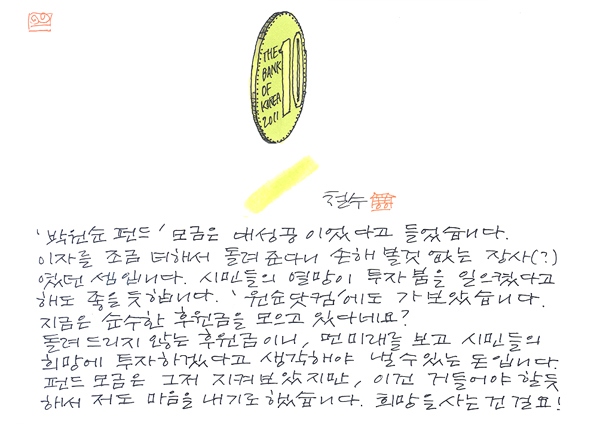 THE
BANK
OF
KOREA
2011
10
철수
'박원순 펀드' 모금은 대성공이었다고 들었습니다.
이자를 조금 더해서 돌려준다니 손해 볼것 없는 장사(?)
였던 셈입니다. 시민들의 열망이 투자 붐을 일으켰다고
해도 좋을 듯합니다. '원순닷컴'에도 가보았습니다.
지금은 '순수한 후원금'을 모으고 있다네요?
돌려드리지 않는 후원금이니, 먼 미래를 보고 시민들의
희망에 투자하겠다고 생각해야 낼 수 있는 돈입니다.
펀드 모금은 그저 지켜보았지만, 이건 거들어야 할듯
해서 저도 마음을 내기로 했습니다. 희망을 사는 건 걸요!